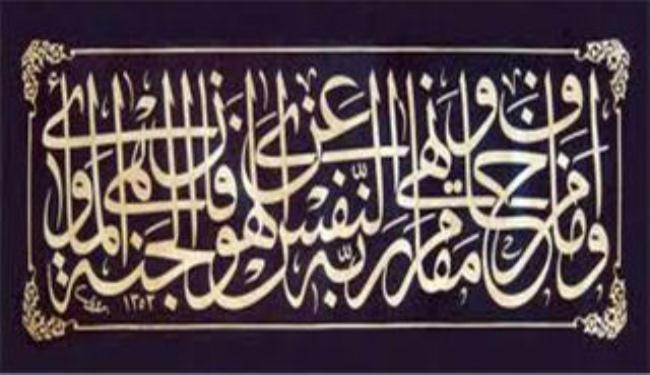 وأما من خاف مقام ربه ونهى النفس عن الهوى فإن الجنة هي المأوى
١٣٥٣